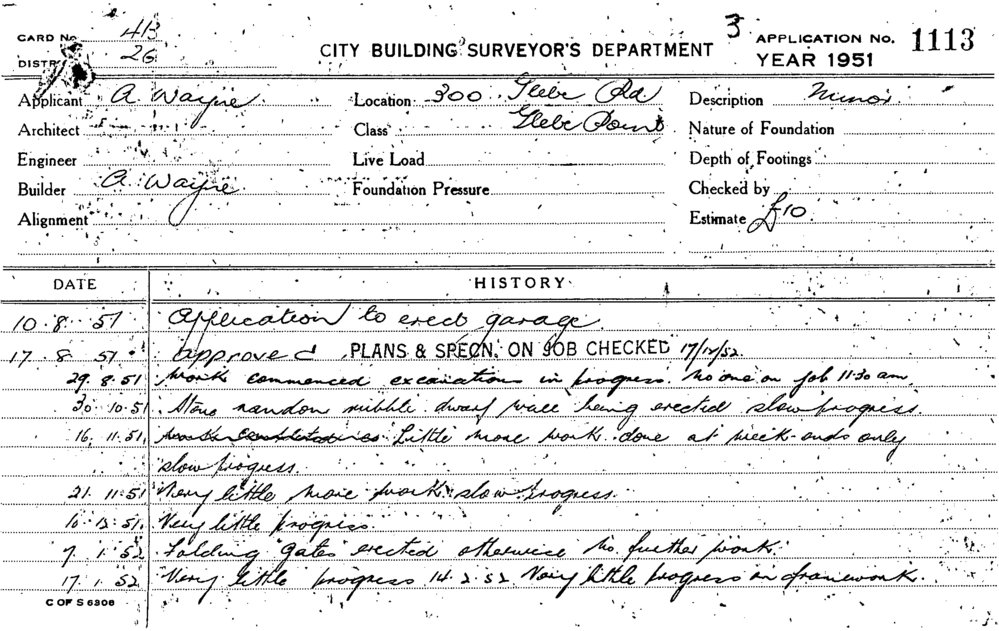 CARD No. 4B 3 APPLICATION No. 1113
DISTR 26 CITY BUILDING SURVEYOR'S DEPARTMENT YEAR 1951
Applicant A Wayne Location 300 Glebe Rd Description Minor
Architect Class Glebe Point Nature of Foundation
Engineer Live Load Depth of Footings
Builder A. Wayne Foundation Pressure Checked by
Alignment Estimate £10
DATE HISTORY
10.8.51 Application to erect garage.
17.8.51 Approved PLANS & SPECN. ON JOB CHECKED 17/12/52
29.8.51 Work commenced excavations in progress. No one on job 11.30 am
30.10.51 Stone random rubble dwarf wall being erected slow progress.
16.11.51 Little more work done at week-ends only
slow progress.
21.11.51 Very little more work slow progress.
10.12.51. Very little progress.
7.1.52 Folding gates erected otherwise no further work.
17.1.52 Very little progress 14.2.52 Very little progress on framework.
C OF S 6308